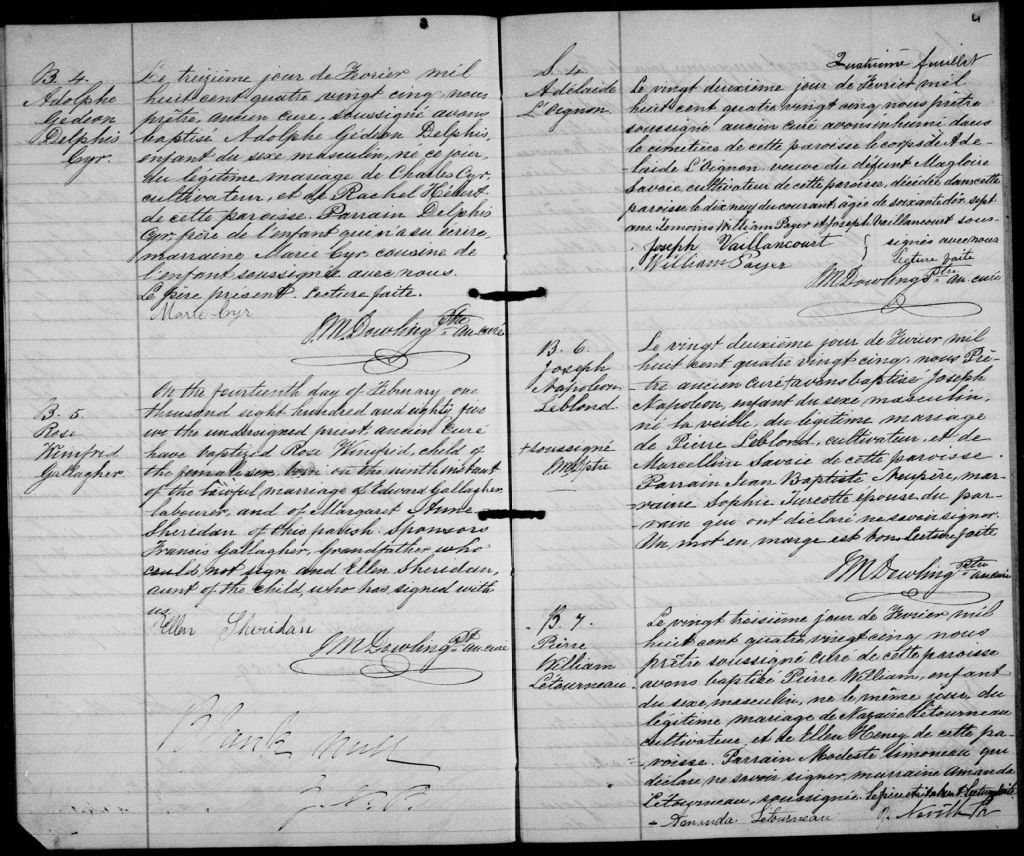 B. 4.
Adolphe
Gédéon
Delphis
Cyr.
Le treizième jour de Fevrier mil
huit cent quatre vingt cinq nous
prêtre, ancien curé, soussigné avons
baptisé Adolphe Gédéon Delphis,
enfant du sexe masculin, né ce jour,
du légitime mariage de Charles Cyr,
cultivateur, et de Rachel Hébert
de cette paroisse. Parrain Delphis
Cyr, frère de l'enfant qui n'a su écrire,
marraine Marie Cyr cousine de
l'enfant soussignée avec nous.
Le père présent. Lecture faite.
Marie Cyr
J.M. Dowling Ptre an. curé
B. 5
Rose
Winifred
Gallagher.
On the fourteenth day of February one
thousand eight hundred and eighty five
we the undersigned priest, ancien Curé
have baptized Rose Winifred, child of
the female sex, born on the ninth instant
of the lawful marriage of Edward Gallagher,
labourer, and of Margaret Anne
Sheridan of this parish. Sponsors
Francis Gallagher, Grandfather who
could not sign and Ellen Sheridan,
aunt of the child, who has signed with
us.
Ellen Sheridan
J.M. Dowling Pt an. curé
Blank null
J. N. P.
4
Quatrième feuillet
S. 4.
Adélaide
L'Oignon.
Le vingt deuxième jour de Fevrier mil
huit cent quatre vingt cinq, nous prêtre
soussigné ancien curé avons inhumé dans
le cemetière de cette paroisse le corps de Ade-
laide L'Oignon veuve du défunt Magloire
Savoie, cultivateur de cette paroisse, décédée dans cette
paroisse le dix neuf du courant, âgée de soixante dix sept
ans. Temoins William Payer et Joseph Vaillancourt sous-
Joseph Vaillancourt } signés avec nous
William Payer lecture faite
J.M. Dowling Ptre an. curé
B. 6.
Joseph
Napoléon
Leblond.
+ soussigné
J.M.D. ptre
Le vingt deuxième jour de Fevrier mil
huit cent quatre vingt cinq, nous Prê-
tre ancien curé + avons baptisé Joseph
Napoléon, enfant du sexe masculin,
né la veille, du légitime mariage
de Pierre Leblond, cultivateur, et de
Marcelline Savoie de cette paroisse.
Parrain Jean Baptiste mar-
raine Sophie Turcotte épouse du par-
rain qui ont déclaré ne savoir signer.
Un mot en marge est bon. Lecture faite
J.M. Dowling Ptre an curé
B. 7.
Pierre
William
Létourneau.
Le vingt troisième jour de Fevrier mil
huit cent quatre vingt cinq nous
prêtre soussigné curé de cette paroisse
avons baptisé Pierre William, enfant
du sexe masculin, né le même jour du
légitime mariage de Nazaire Létourneau
cultivateur et de Ellen Heney de cette pa-
roisse. Parrain Modeste Simoneau qui
déclare ne savoir signer, marraine Amanda
Létourneau, soussignée. Le père était absent. Lecture faite.
+ Amanda Létourneau J. Nevill Ptr